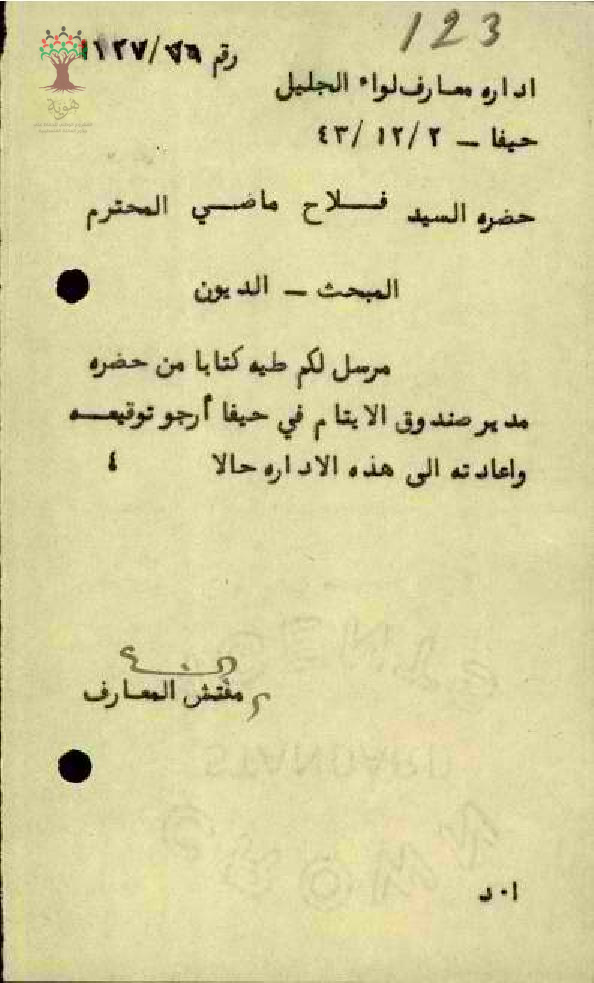 123
رقم ١١٢٧/٧٦
اداره معارف لواء الجليل
حيفا – ٢/ ١٢/ ٤٣
حضره السيد فلاح ماضي المحترم
المبحث – الديون
مرسل لكم طيه كتابا من حضره
مدير صندوق الايتام في حيفا أرجو توقيعه
واعادته الى هذه الاداره حالا ٤
مفتش المعارف
ا٠د
هوية